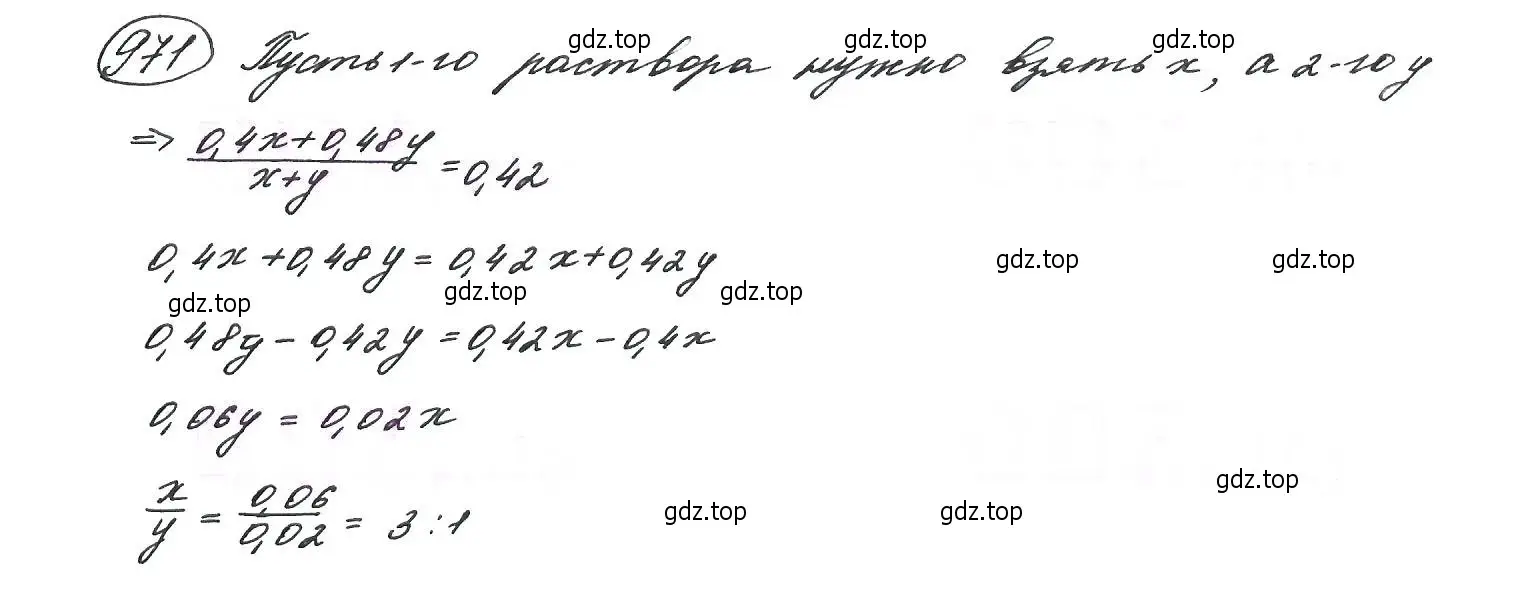 971 Пусть 1-го раствора нужно взять x, а 2-го y
gdz.top gdz.top gdz.top
=> (0,4x+0,48y)/(x+y) = 0,42
0,4x+0,48y = 0,42x+0,42y
gdz.top gdz.top
gdz.top gdz.top gdz.top
0,48y - 0,42y = 0,42x - 0,4x
0,06y = 0,02x
gdz.top
x/y = 0,06/0,02 = 3:1
gdz.top gdz.top